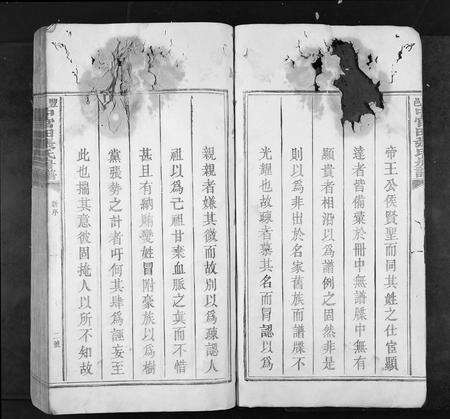 帝王公侯賢聖而同其姓之仕宦顯
達者皆備彙於冊中無譜牒中無有
顯貴者相沿以爲譜例之固然非是
則以爲非出於名家舊族而譜牒不
光鍟也故疎者慕其名而冒認以爲
親親者嫌其微而故別以爲疎認人
祖以爲己祖甘棄血脈之眞而不惜
甚且有納賄變姓冒附豪族以爲樹
黨張勢之計者吁何其肆爲誣妄至
此也揣其意彼固掩人以所不知故
新序